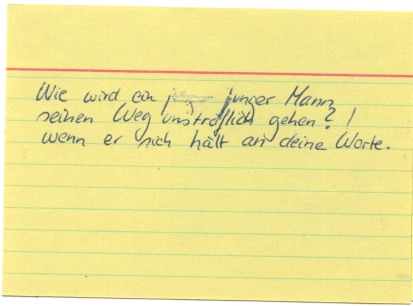 Wie wird ein junger Mann
seinen Weg unsträflich gehen? !
wenn er sich hält an deine Worte.